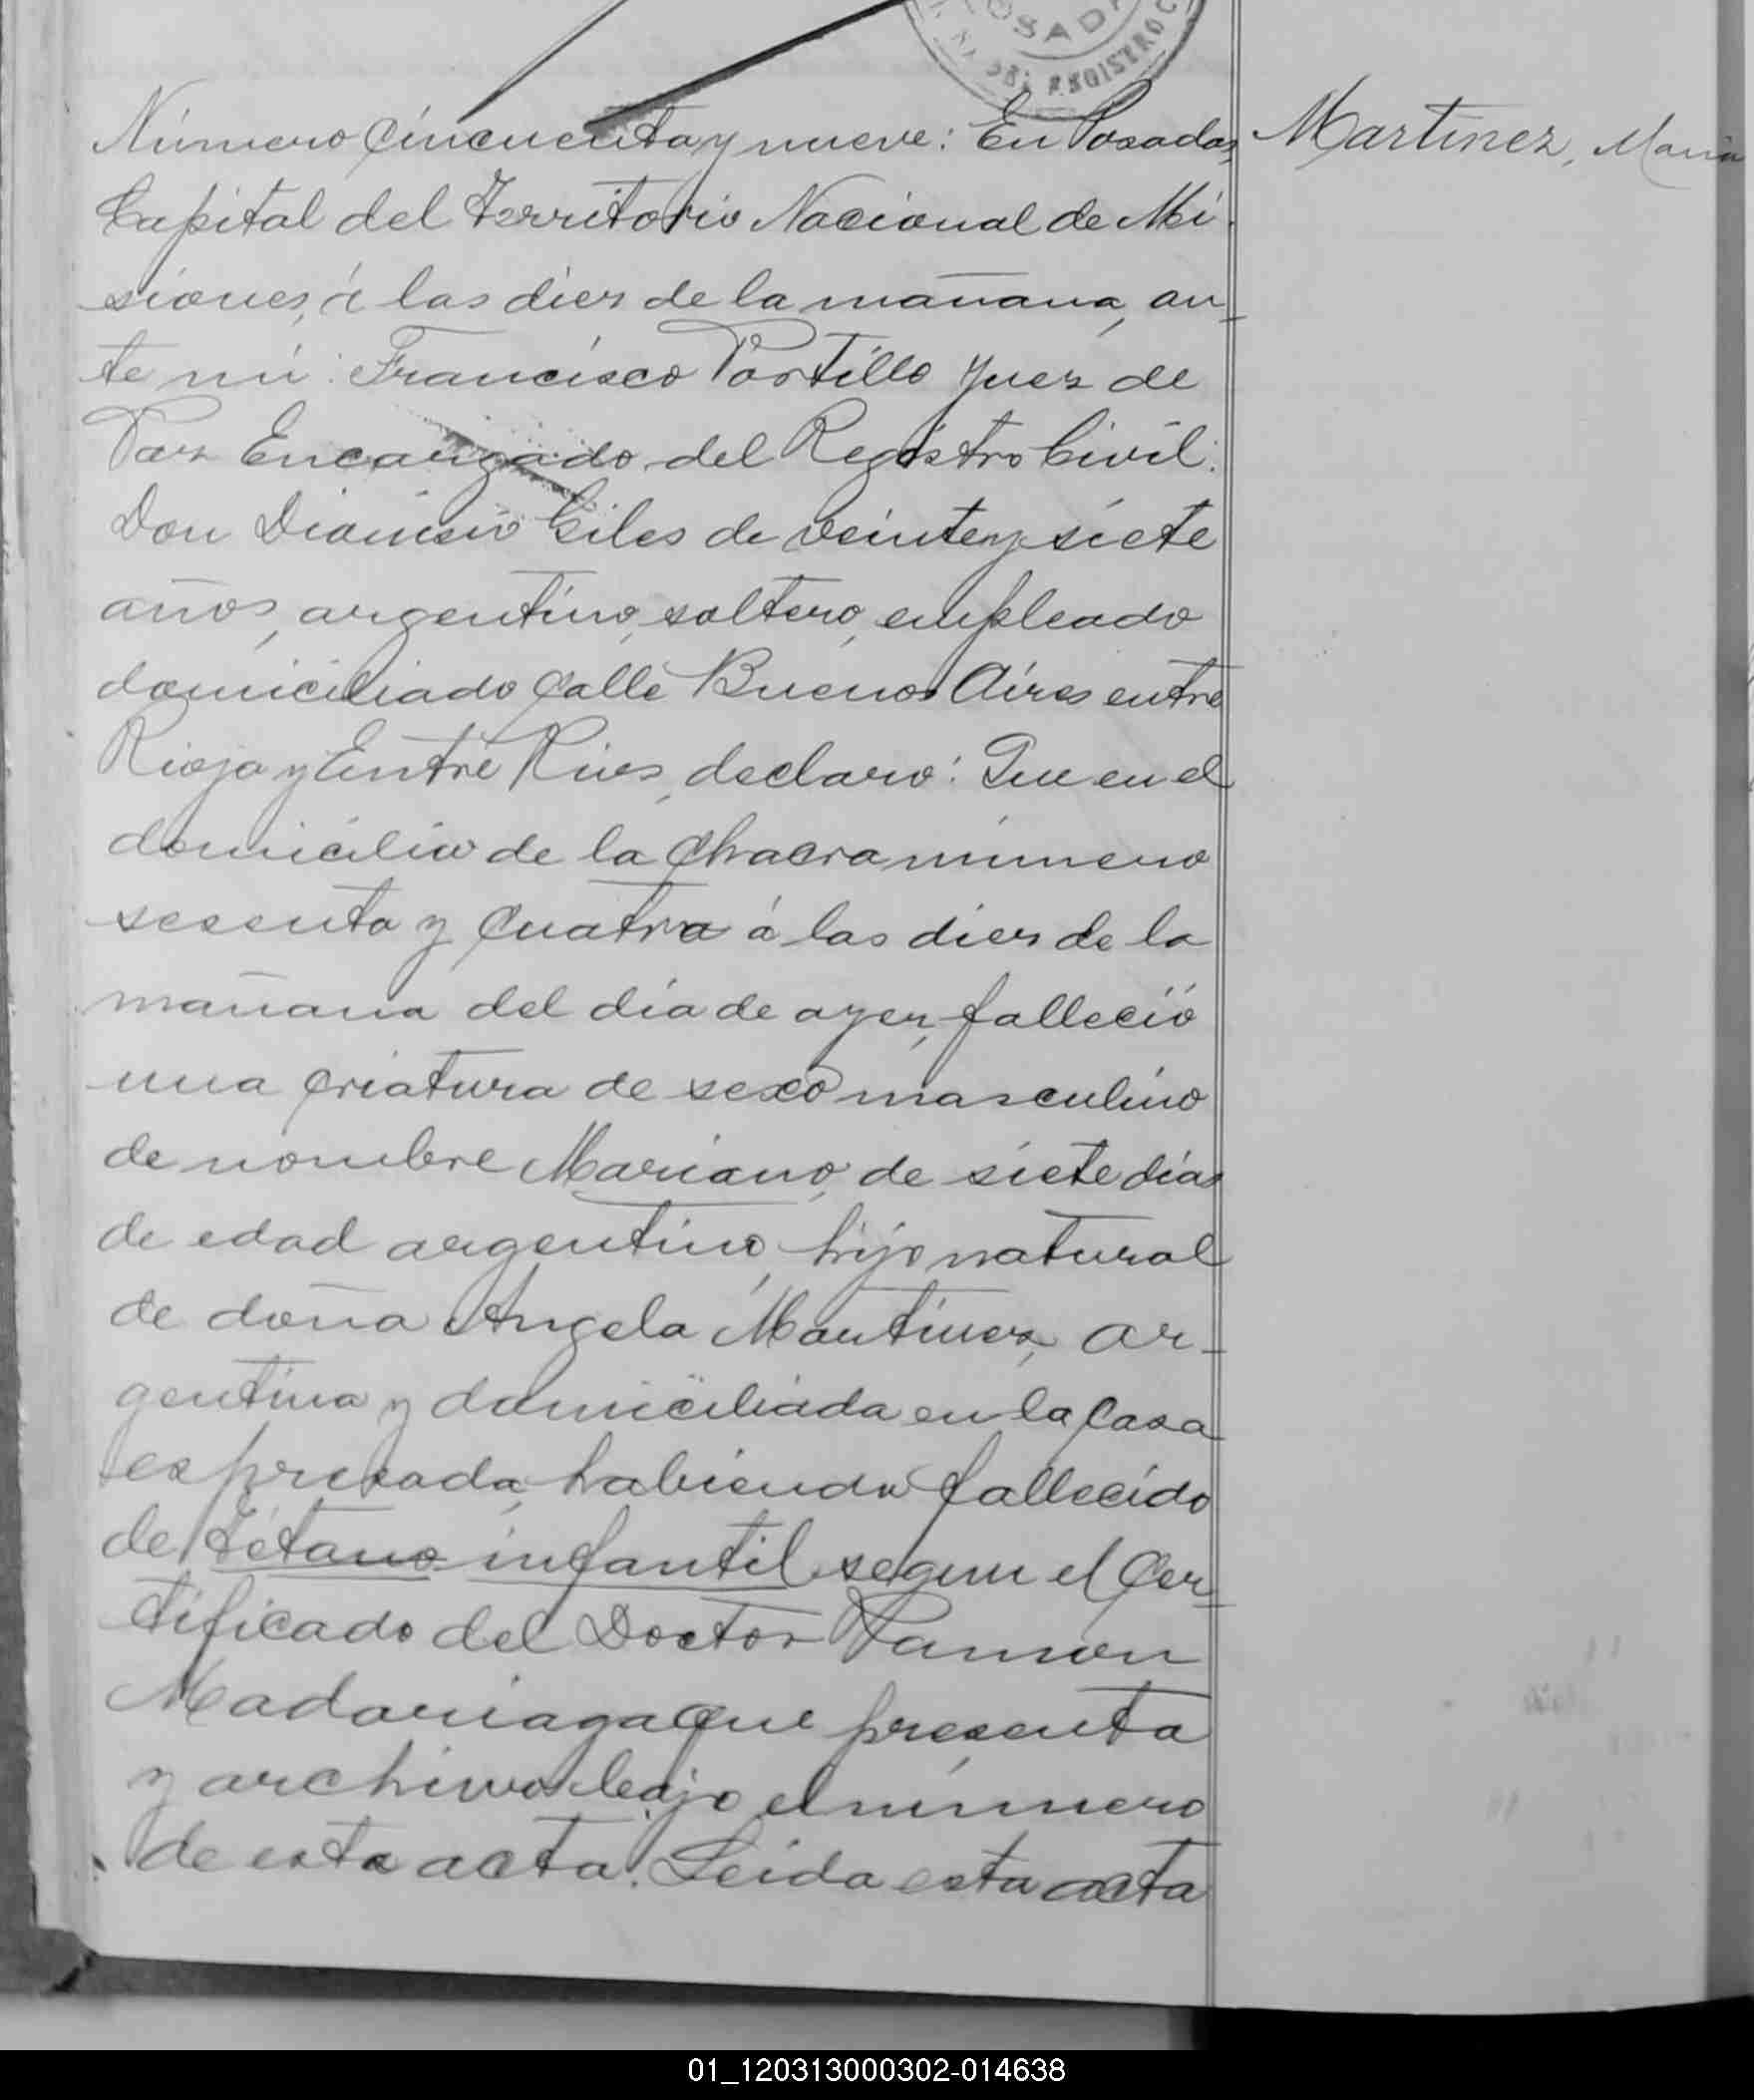 POSADA
REGISTRO C
Número Cincuenta y nueve: En Posadas,
Martinez, Maria
Capital del Territorio Nacional de Mi
siones, á las diez de la mañana, an-
te mi: Francisco Portillo Juez de
Paz Encargado del Registro Civil:
Don Dionisio Giles de veinte y siete
años, argentino, soltero, empleado
domiciliado Calle Buenos Aires entre
Rioja y Entre Rios, declaro: Que en el
domicilio de la Chacra número
sesenta y cuatro á las diez de la
mañana del dia de ayer, falleció
una Criatura de sexo masculino
de nombre Mariano, de siete dias
de edad argentino, hijo natural
de doña Angela Martinez, ar-
gentina y domiciliada en la Casa
espresada, habiendo fallecido
de Tétano infantil segun el Cer-
tificado del Doctor Ramon
Madariaga que presenta
y archivo bajo el número
de esta acta. Leida esta acta
01_120313000302-014638